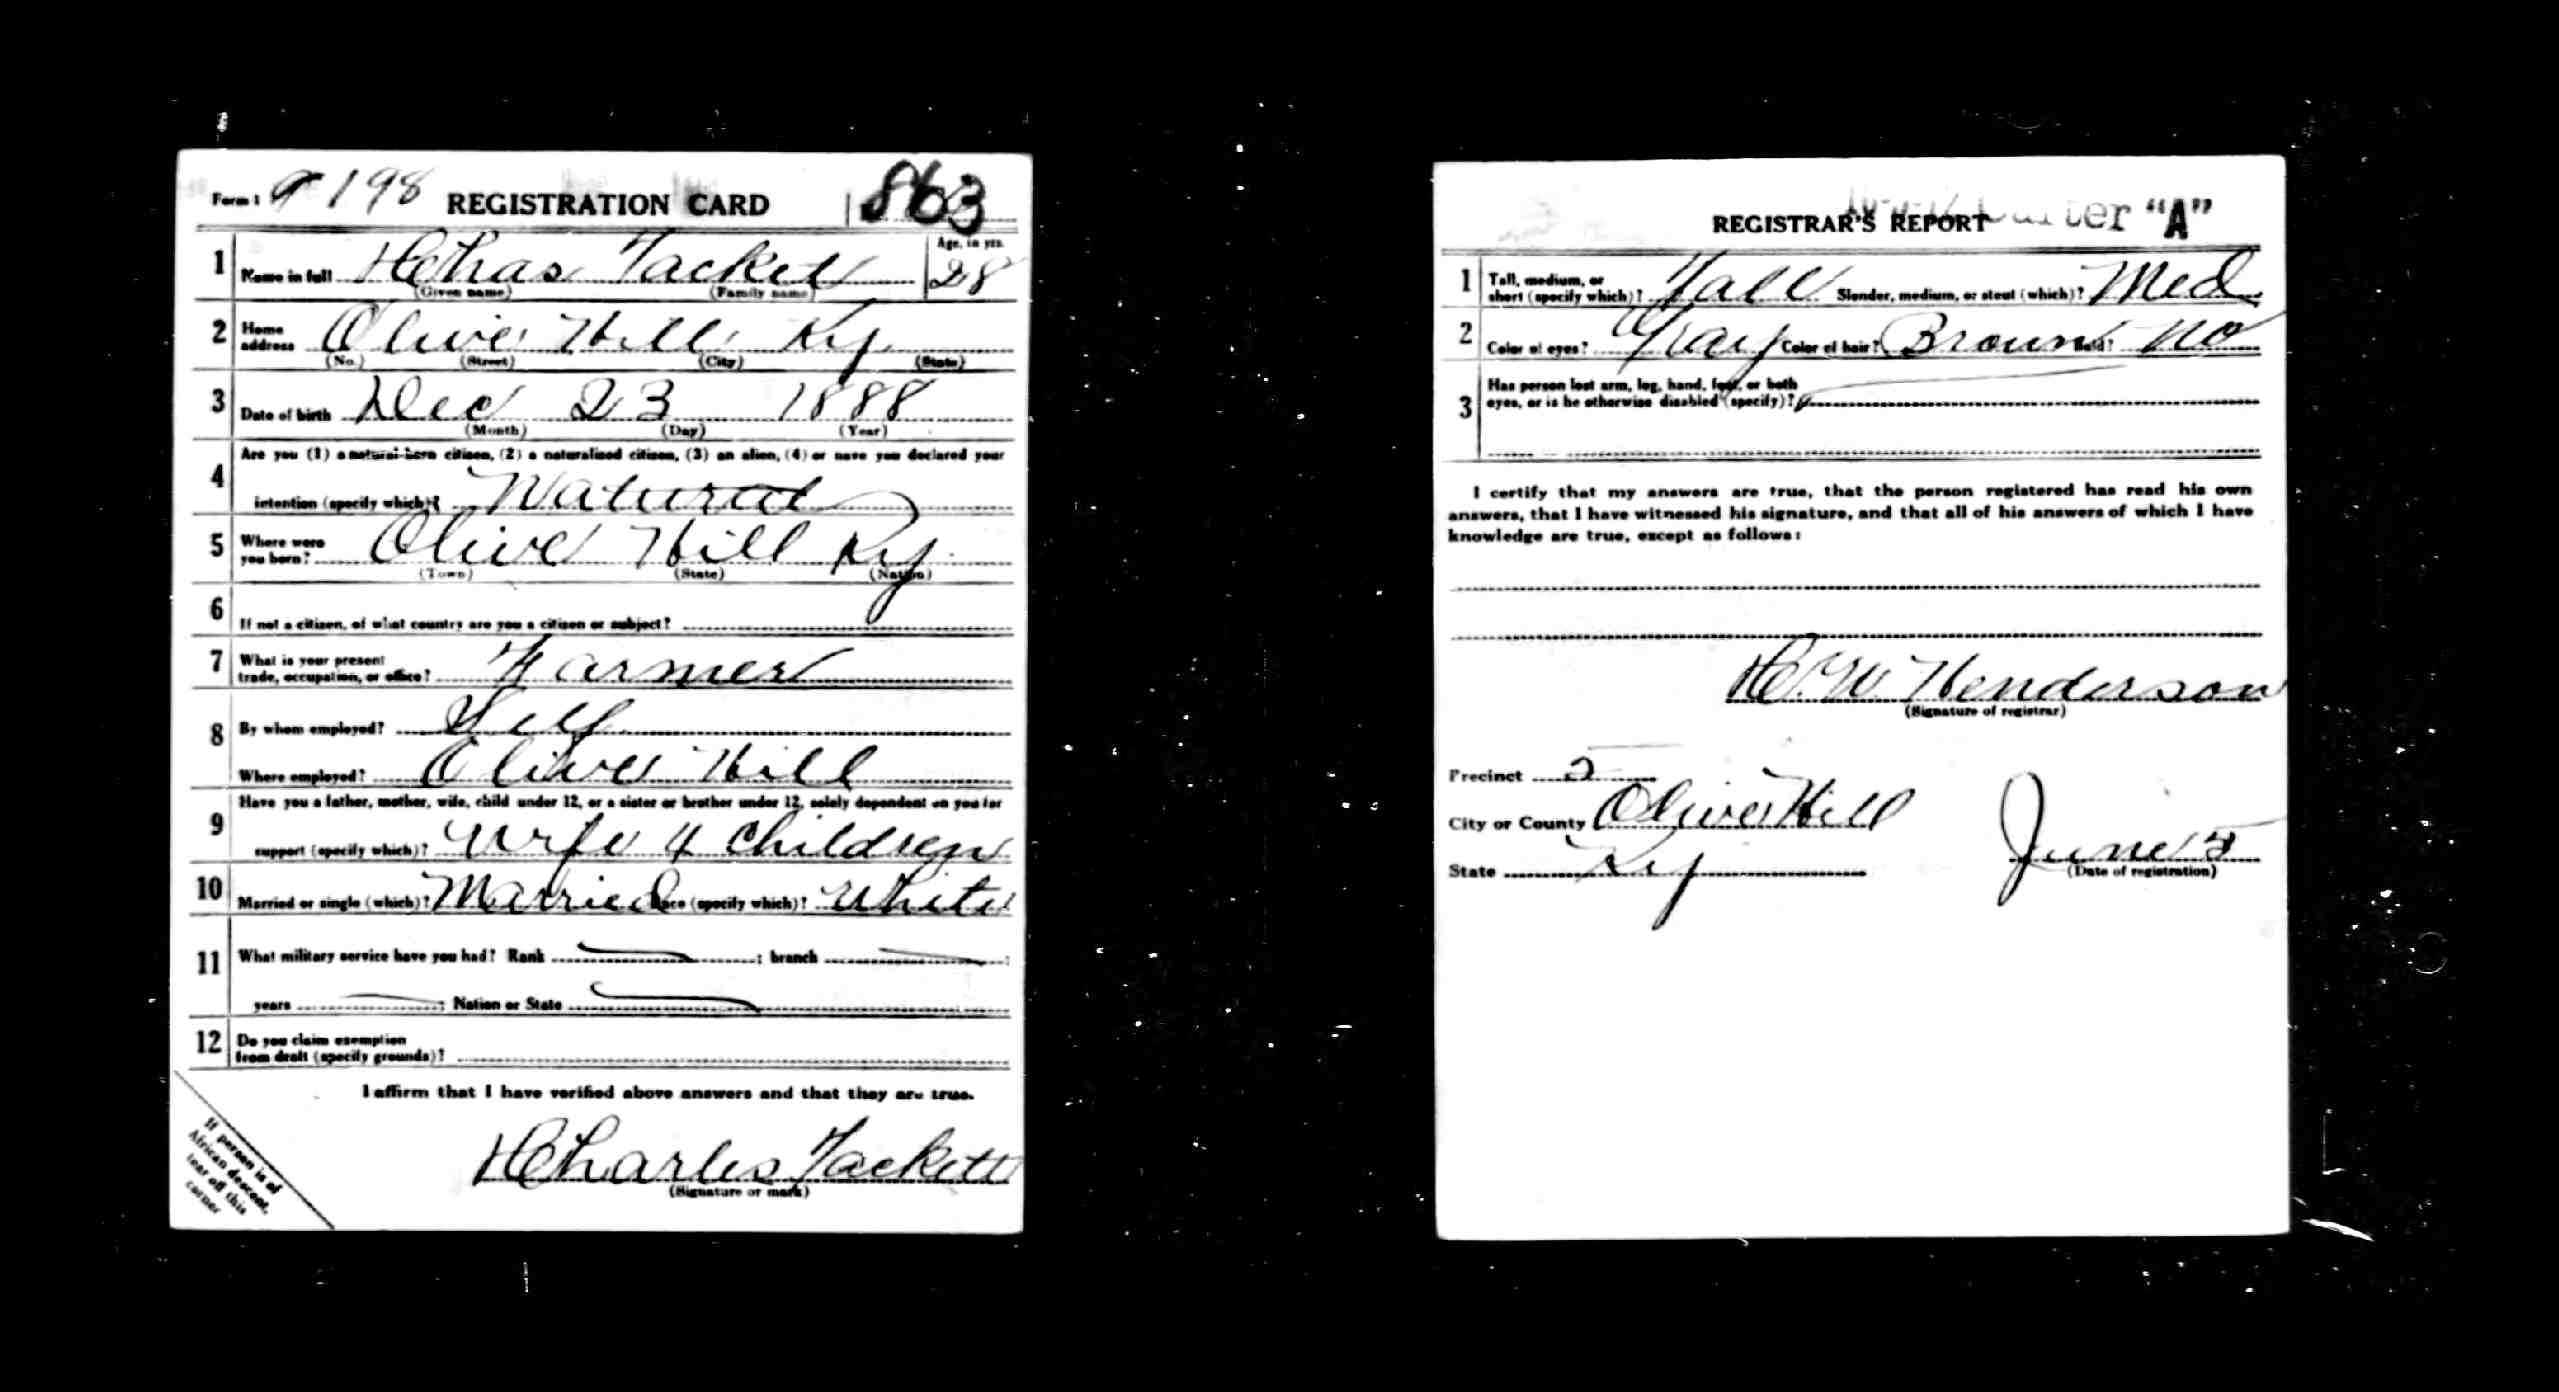 Form 1 198 REGISTRATION CARD 863
1 Name in full H Chas Tackett Age, in yrs. 28
(Given name) (Family name)
2 Home address Olive Hill Ky
(No.) (Street) (City) (State)
3 Date of birth Dec 23 1888
(Month) (Day) (Year)
4 Are you (1) a natural-born citizen, (2) a naturalized citizen, (3) an alien, (4) or have you declared your
intention (specify which)? Natural
5 Where were you born? Olive Hill Ky
(Town) (State) (Nation)
6 If not a citizen, of what country are you a citizen or subject?
7 What is your present
trade, occupation, or office? Farmer
8 By whom employed? Self
Where employed? Olive Hill
9 Have you a father, mother, wife, child under 12, or a sister or brother under 12, solely dependent on you for
support (specify which)? Wife 4 Children
10 Married or single (which)? Married Race (specify which)? White
11 What military service have you had? Rank ; branch ;
years ; Nation or State
12 Do you claim exemption
from draft (specify grounds)?
I affirm that I have verified above answers and that they are true.
H Charles Tackett
(Signature or mark)
If person is of
African descent,
tear off this
corner
REGISTRAR'S REPORT "A"
1 Tall, medium, or
short (specify which)? Tall Slender, medium, or stout (which)? Med
2 Color of eyes? Gray Color of hair? Brown Bald? No
3 Has person lost arm, leg, hand, foot, or both
eyes, or is he otherwise disabled (specify)?
I certify that my answers are true, that the person registered has read his own
answers, that I have witnessed his signature, and that all of his answers of which I have
knowledge are true, except as follows:
H. W. Henderson
(Signature of registrar)
Precinct 2
City or County Olive Hill
State Ky June 5
(Date of registration)